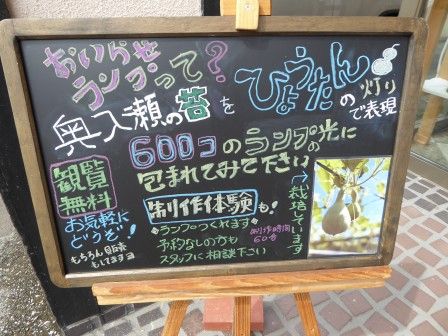 おいらせ
ランプって?
奥入瀬の苔を
ひょうたん
の灯り
で表現
600コのランプの光に
包まれてみて下さい
観覧
無料
お気軽に
どうぞ!
もちろん
もしてます
制作体験も!
ランプつくれます
予約なしの方も
スタッフに相談下さい
制作時間
60分
→栽培しています